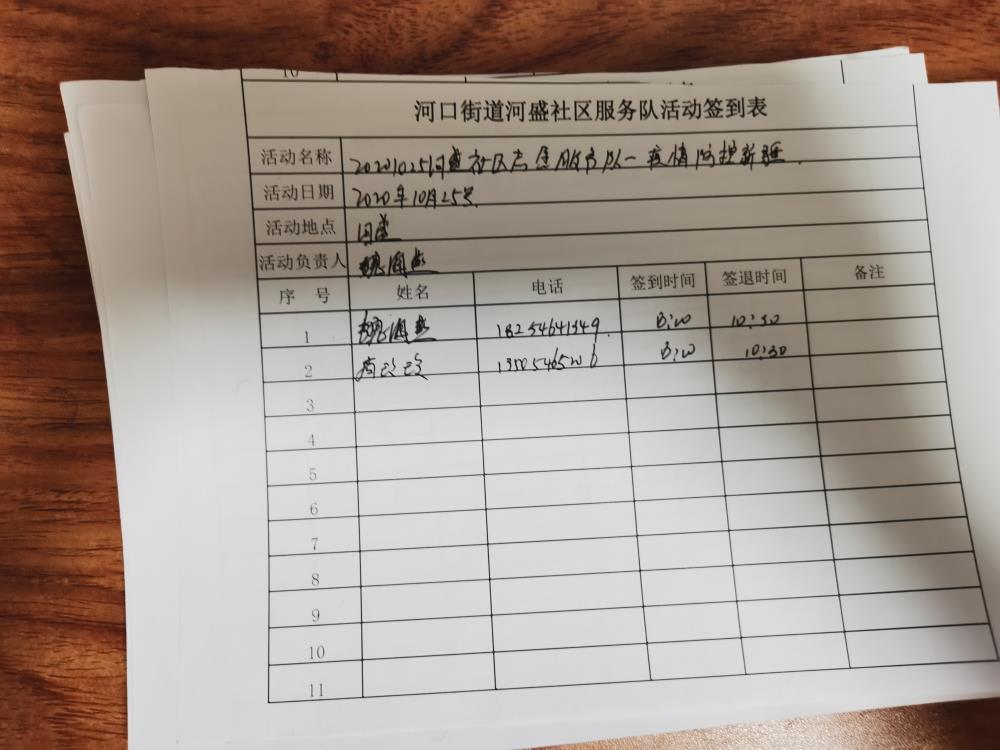 10
河口街道河盛社区服务队活动签到表
活动名称 20201025河盛社区志愿服务队一疫情防控新疆
活动日期 2020年10月25号
活动地点 河盛
活动负责人 魏海燕
序 号 姓名 电话 签到时间 签退时间 备注
1 魏海燕 18254641349 8:00 10:30
2 8:00 10:30
3
4
5
6
7
8
9
10
11